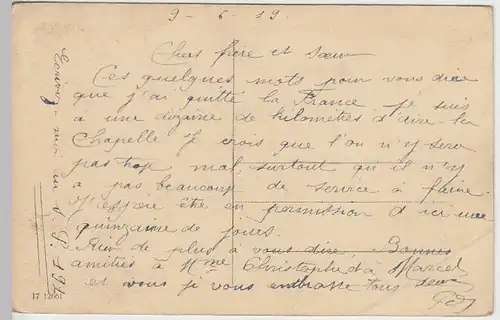 9 - 6 - 19.
Chers frère et sœur
Ces quelques mots pour vous dire
que j'ai quitté la France je suis
à une dizaine de kilomètres d'Aix-la
Chapelle Je crois que l'on n'y sera
pas trop mal, surtout qu'il n'y
a pas beaucoup de service à faire
J'espère être en permission d'ici une
quinzaine de jours.
Rien de plus à vous dire, Bonnes
amitiés à Mme Christophe et à Marcel
et vous je vous embrasse tous deux
Ecrivez-moi au S. P. 194
17 12661